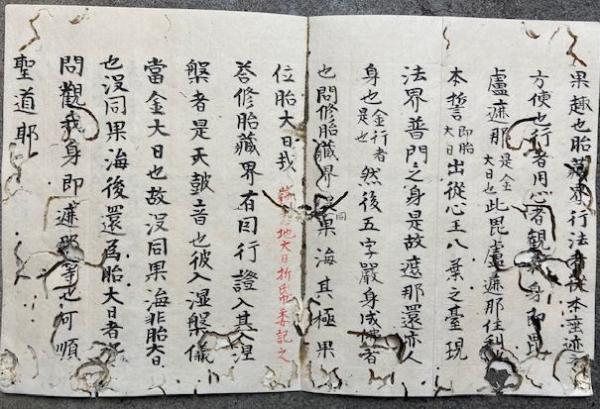 果趣也胎藏界行法者從本垂迹之
方便也行者用心者觀我身即毘
盧遮那是金大日也此毘盧遮那住利
本誓即胎大日出從心王八葉之臺現
法界普門之身是故遮那還亦入
身也金行者是也然後五字嚴身成佛者
也問修胎藏界同果海其極果
位胎大日我
荅修胎藏界有因行證入其入涅
槃者是天皷音也彼入涅槃儀
當金大日也故沒同果海非胎大日
也沒同果海後還爲胎大日者
問觀我身即遮那等也何順
聖道耶